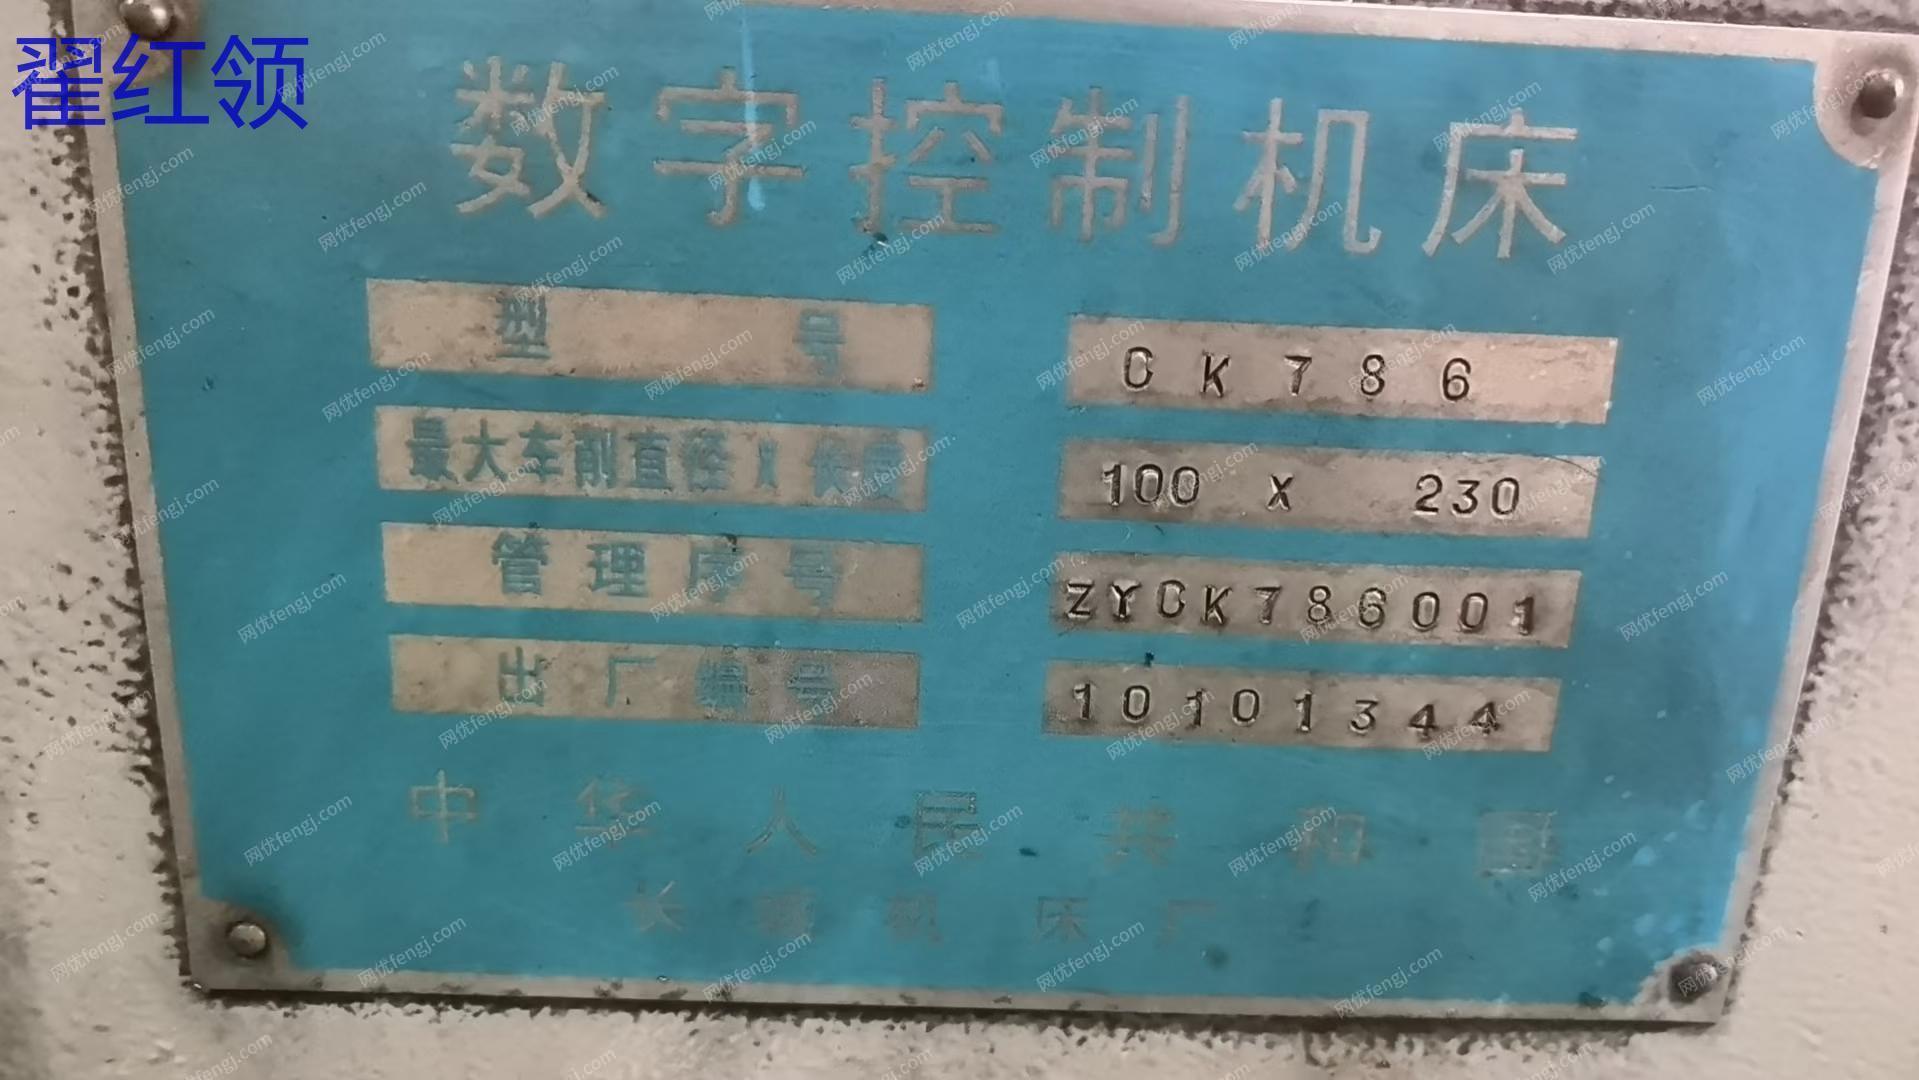 翟红领
数字控制机床
型号 CK786
最大车削直径X长度 100 X 230
管理序号 ZYCK786001
出厂编号 10101344
中华人民共和国
长 机床厂
网优fengj.com